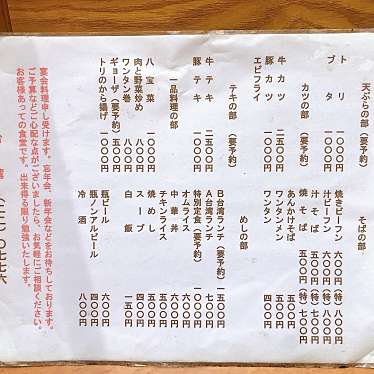 天ぷらの部(要予約)
トリ 一〇〇〇円
カツの部(要予約)
牛カツ 二五〇〇円
豚カツ 一〇〇〇円
エビフライ
テキの部(要予約)
牛テキ 二五〇〇円
豚テキ 一〇〇〇円
一品料理の部
八宝菜 一〇〇〇円
肉と野菜炒め 八〇〇円
ワンタン巻
ギョーザ(要予約) 五〇〇円
トリのから揚げ 一〇〇〇円
そばの部
焼きビーフン 六〇〇円(特)八〇〇円
汁ビーフン 六〇〇円(特)八〇〇円
汁そば 五〇〇円(特)七〇〇円
焼そば 五〇〇円(特)七〇〇円
あんかけそば
ワンタンメン 五〇〇円
ワンタン 四〇〇円
めしの部
B台湾ランチ(要予約) 一五〇〇円
A台湾ランチ 七〇〇円
特別定食(要予約) 一〇〇〇円
オムライス 六〇〇円
中華丼 六〇〇円
チキンライス 五〇〇円
焼めし 五〇〇円
スープ
白飯 一五〇円
瓶ビール 六〇〇円
瓶ノンアルビール 四〇〇円
冷酒 八〇〇円
宴会料理申し受けます。忘年会、新年会などをお待ちしております。
ご予算などご心配な点がございましたら、お気軽にご相談ください。
お客様あっての食堂です。出来得る限り勉強いたします。